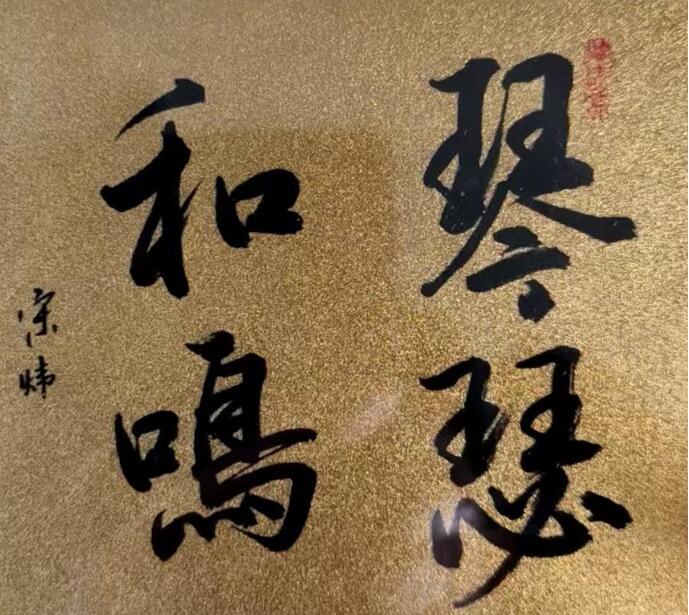 琴瑟
和鳴
宗炜